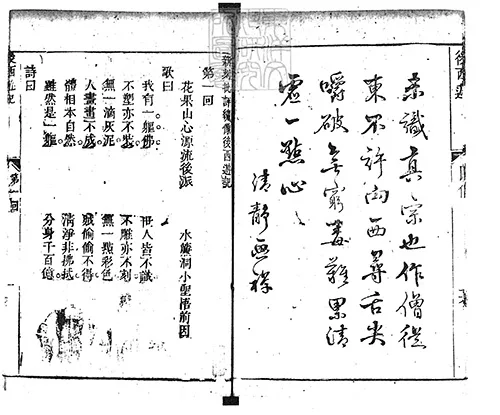 後西遊
未識真宗也作僧從
東不許向西尋舌尖
嚼破無窮
虛一點心
清靜
新刻批評繡像後西遊記
第一回
花果山心源流後派　水簾洞小聖悟前因
歌曰
我有一軀佛　世人皆不識
不塑亦不裝　不雕亦不刻
無一滴灰泥　無一點彩色
人畫畫不成　賊偷偷不得
體相本自然　清淨非拂拭
雖然是一軀　分身千百億
詩曰
後西遊記　第一回